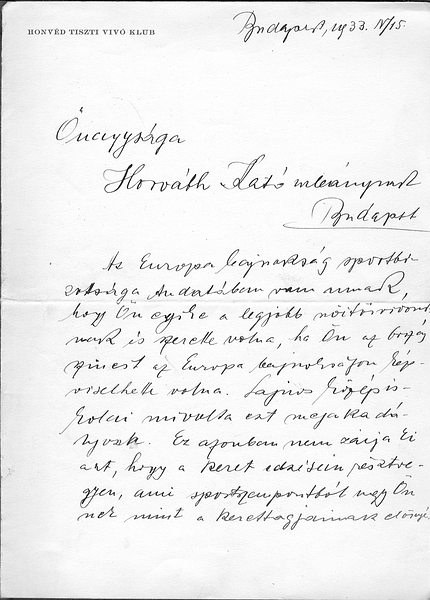 HONVÉD TISZTI VIVÓ KLUB
Budapest, 1933. IV/15.
Őnagysága
Horváth Kató urleánynak
Budapest
Az Europa bajnokság sportbi-
zottsága tudatában van annak,
hogy Ön egyike a legjobb női tőrvivóink
nak és szerette volna, ha Ön az ország
szineit az Europa bajnokságon kép-
viselhette volna. Sajnos középis-
kolai mivolta ezt megakadá-
lyozza. Ez azonban nem zárja ki
azt, hogy a keret edzésein résztve-
gyen, ami sportszempontból ugy Ön
nek mint a kerettagjainak előnyé